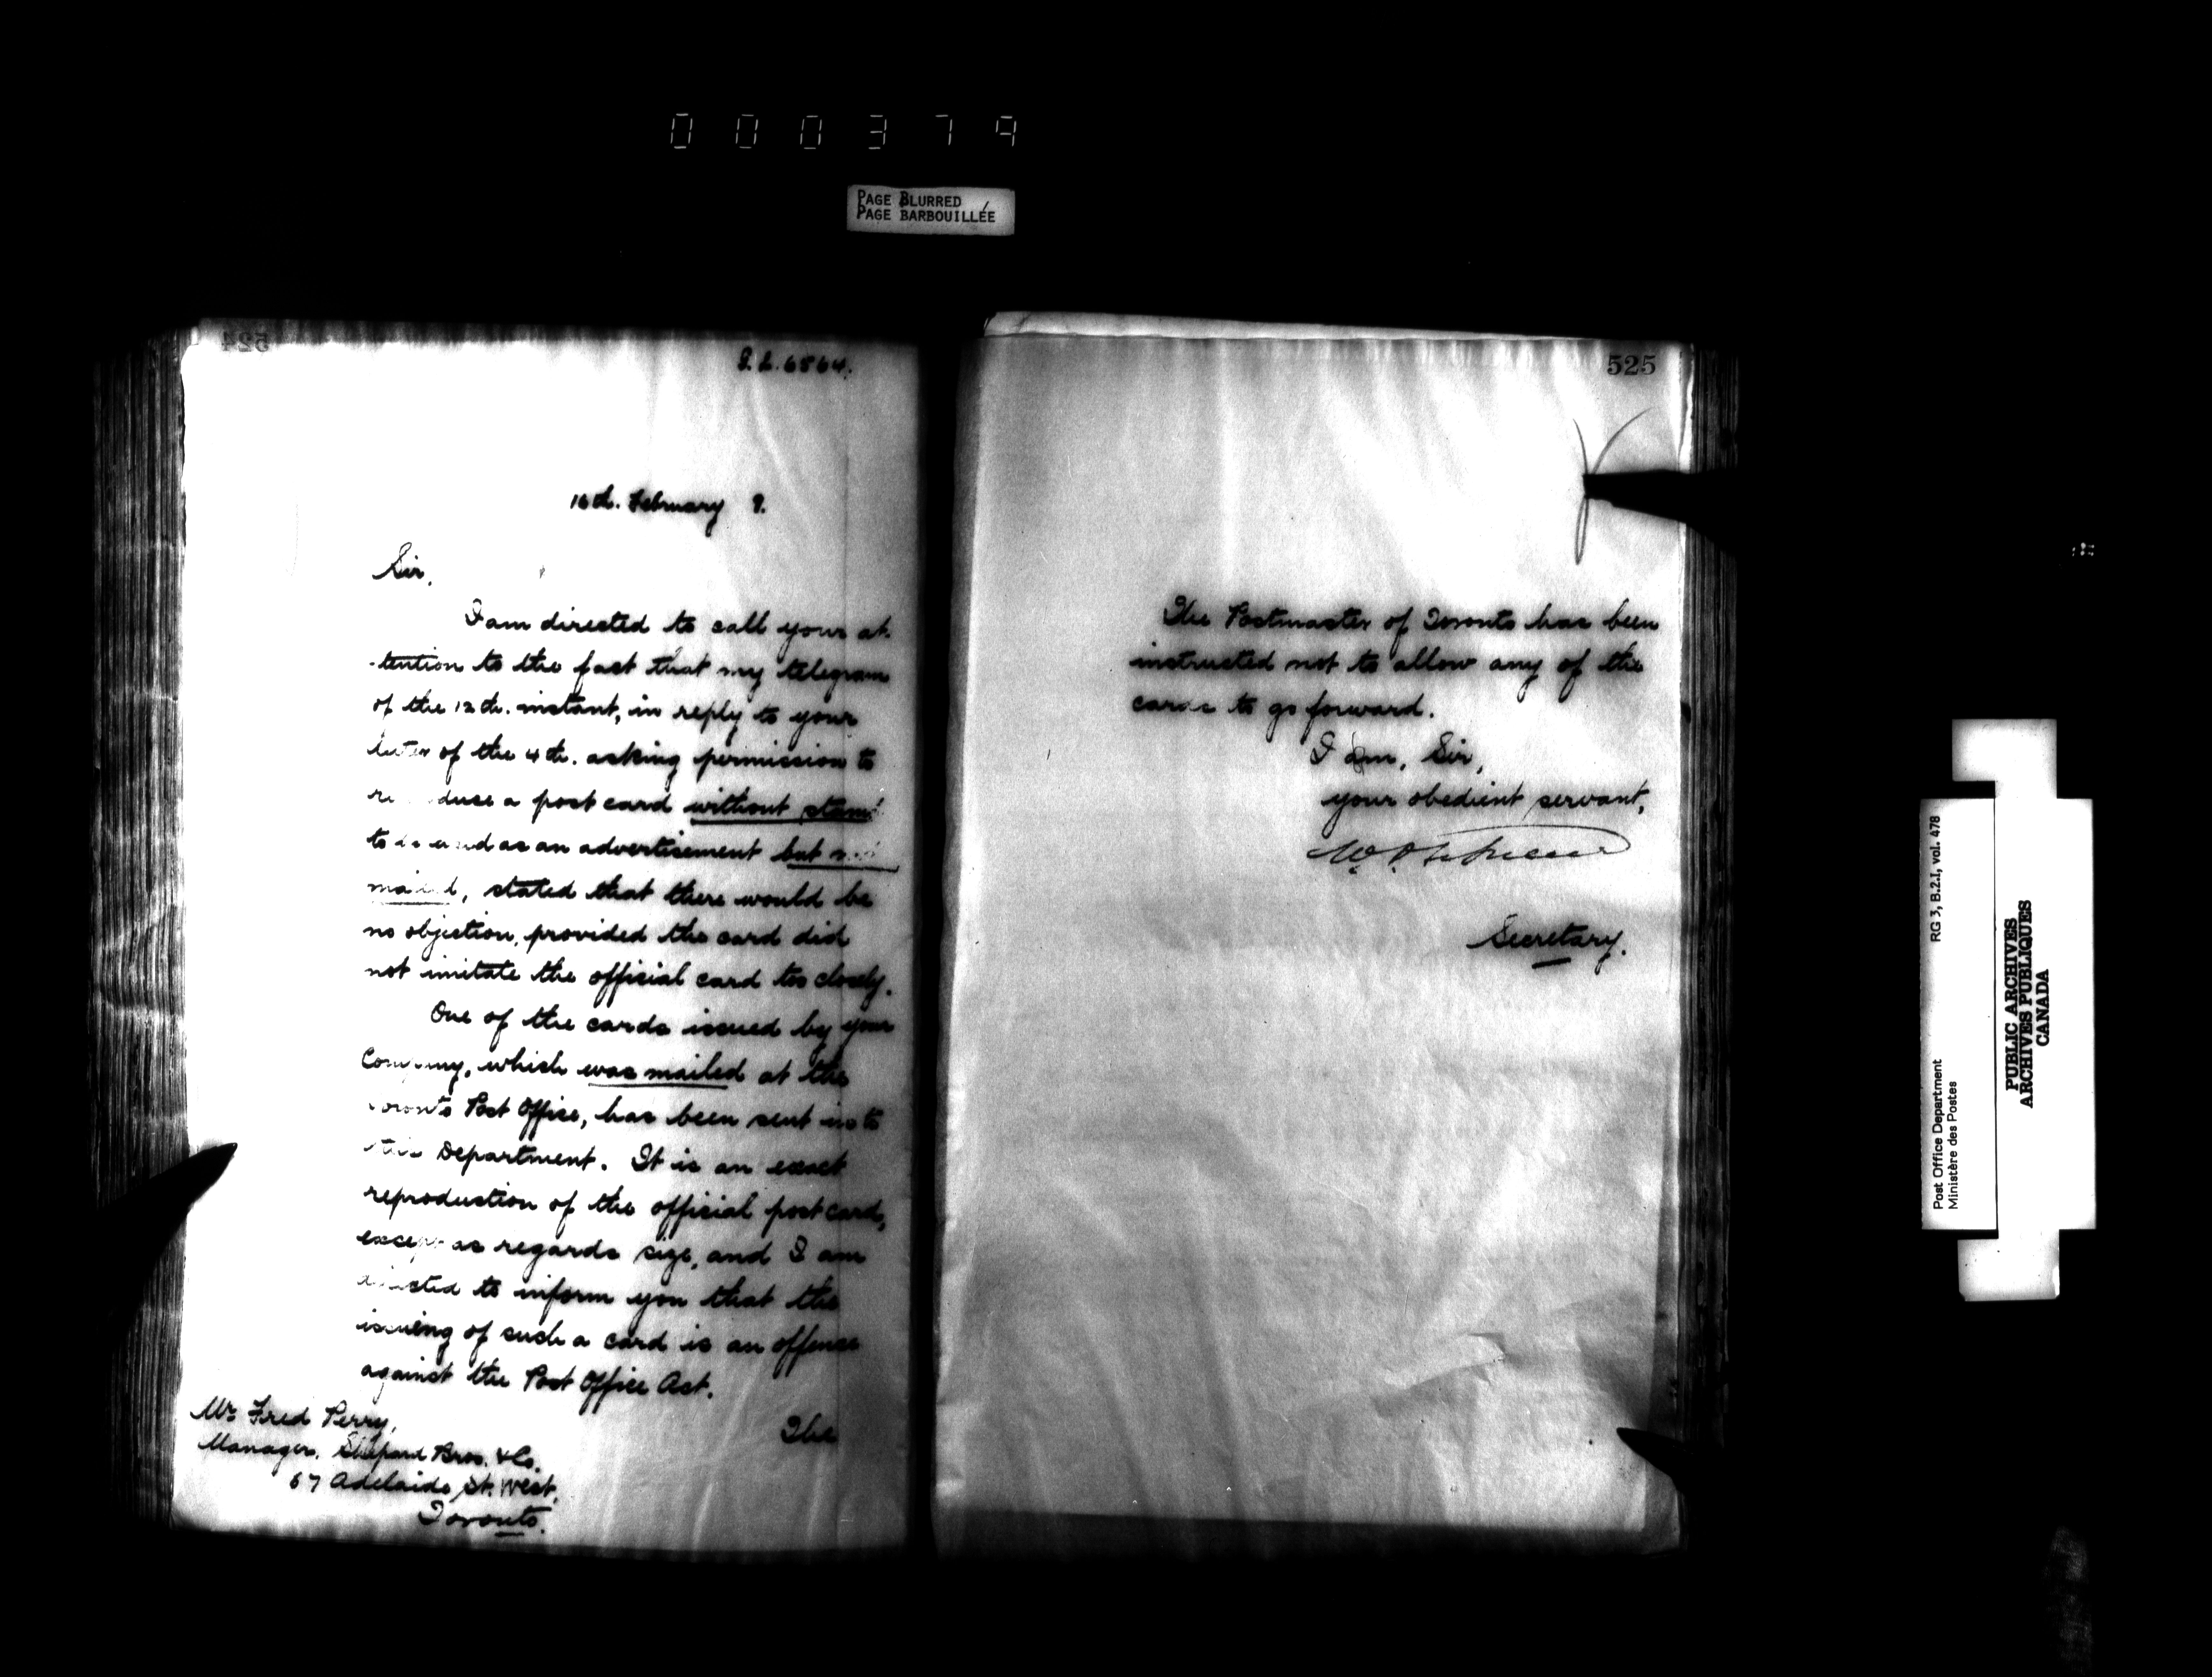 000379
PAGE BLURRED
PAGE BARBOUILLÉE
524
6564.
16th. February 9.
Sir,
I am directed to call your at-
-tention to the fact that my telegram
of the 12th. instant, in reply to your
letter of the 4th. asking permission to
a post card without stamp
to as an advertisement but not
mailed, stated that there would be
no objection, provided the card did
not imitate the official card too closely.
One of the cards issued by your
Company, which was mailed at the
Toronto Post Office, has been sent in to
this Department. It is an exact
reproduction of the official post card,
except as regards size, and I am
directed to inform you that the
issuing of such a card is an offence
against the Post Office Act.
The
Mr Fred Perry,
Manager, Shepard Bros. & Co.
67 Adelaide St. West,
Toronto.
525
The Postmaster of Toronto has been
instructed not to allow any of the
cards to go forward.
I am, Sir,
your obedient servant,
Secretary.
Post Office Department RG 3, B.2.I, vol. 478
Ministère des Postes
PUBLIC ARCHIVES
ARCHIVES PUBLIQUES
CANADA